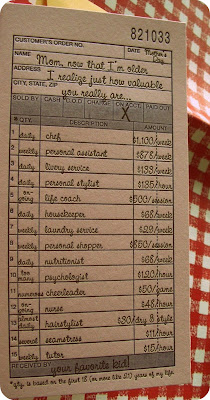 821033
CUSTOMER'S ORDER NO. DATE Mother's Day
NAME Mom, now that I'm older
ADDRESS I realize just how valuable
CITY, STATE, ZIP you really are...
SOLD BY CASH C.O.D. CHARGE ON ACCT. PAID OUT
X
QTY. DESCRIPTION AMOUNT
1 daily chef $1,100/week
2 weekly personal assistant $878/week
3 daily livery service $139/week
4 daily personal stylist $135/hour
5 on-going life coach $500/session
6 daily housekeeper $68/week
7 weekly laundry service $29/week
8 weekly personal shopper $850/session
9 daily nutritionist $68/week
10 too many psychologist $120/hour
11 numerous cheerleader $50/game
12 on-going nurse $48/hour
13 almost daily hairstylist $30/dry & style
14 several seamstress $11/hour
15 weekly tutor $15/hour
RECEIVED BY your favorite kid!
*qty. is based on the first 18 (or more like 21) years of my life.